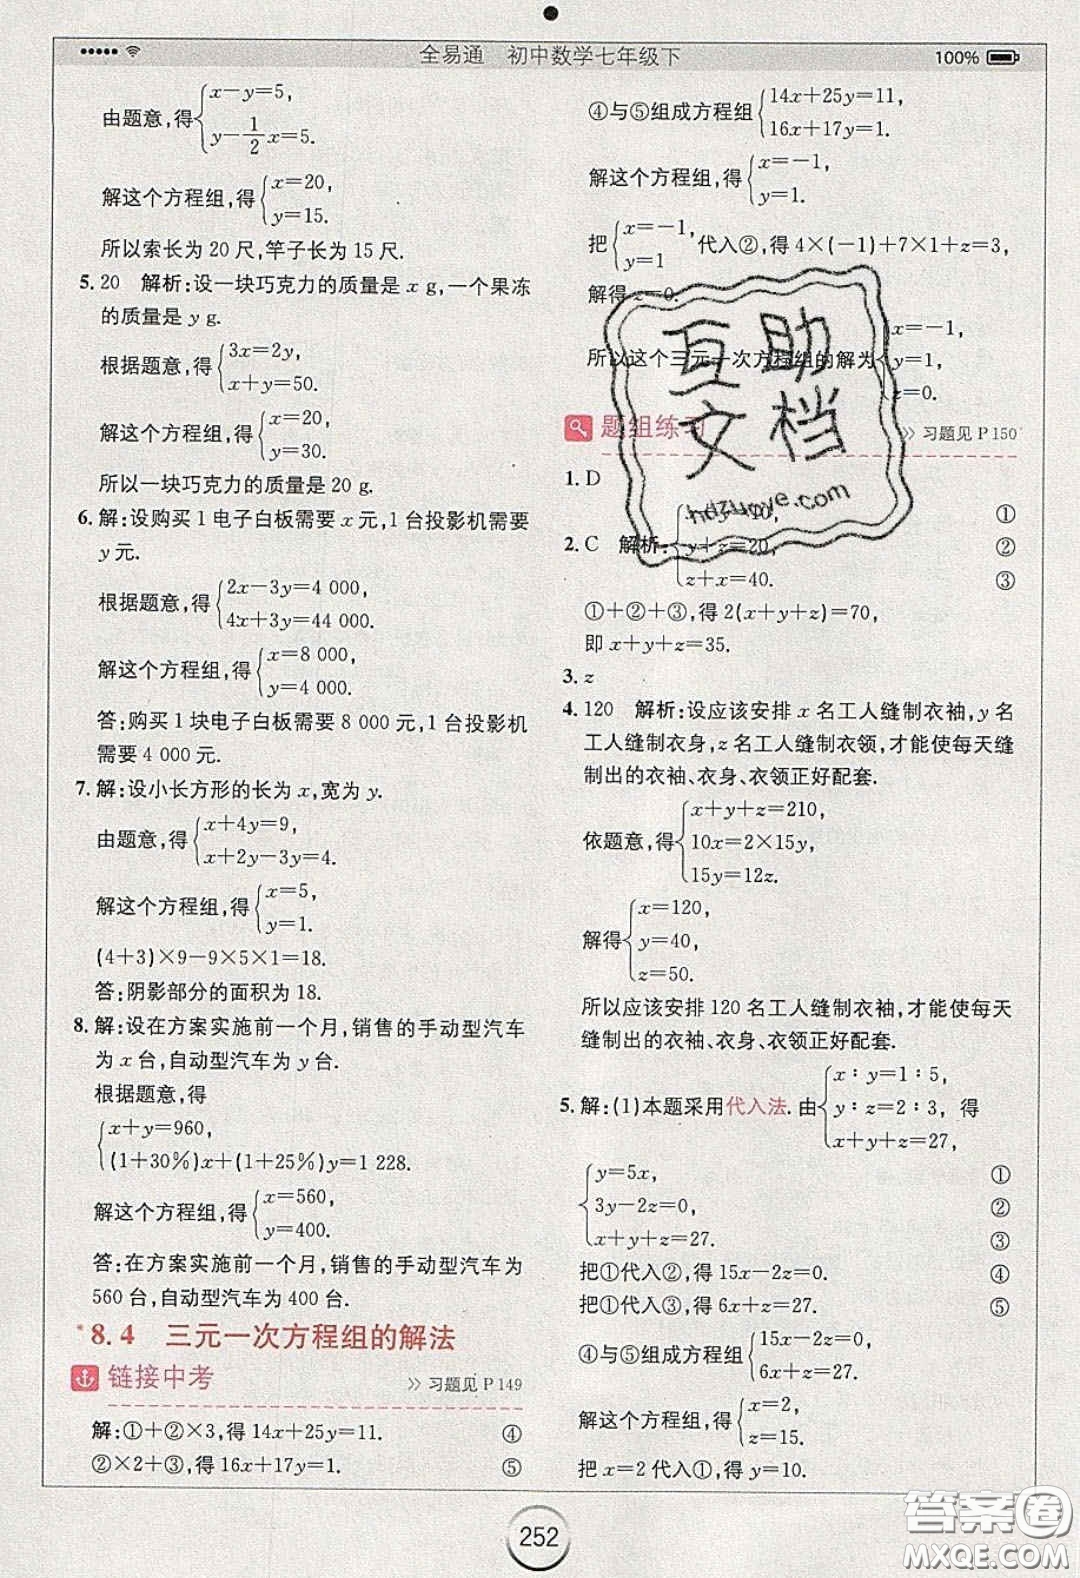 全易通 初中数学七年级下
100%
由题意,得{x−y=5, y−1/2x=5.
解这个方程组,得{x=20, y=15.
所以索长为 20 尺,竿子长为 15 尺.
5. 20 解析:设一块巧克力的质量是 x g,一个果冻
的质量是 y g.
根据题意,得{3x=2y, x+y=50.
解这个方程组,得{x=20, y=30.
所以一块巧克力的质量是 20 g.
6. 解:设购买 1 电子白板需要 x 元,1 台投影机需要
y 元.
根据题意,得{2x−3y=4 000, 4x+3y=44 000.
解这个方程组,得{x=8 000, y=4 000.
答:购买 1 块电子白板需要 8 000 元,1 台投影机
需要 4 000 元.
7. 解:设小长方形的长为 x,宽为 y.
由题意,得{x+4y=9, x+2y−3y=4.
解这个方程组,得{x=5, y=1.
(4+3)×9−9×5×1=18.
答:阴影部分的面积为 18.
8. 解:设在方案实施前一个月,销售的手动型汽车
为 x 台,自动型汽车为 y 台.
根据题意,得
{x+y=960, (1+30%)x+(1+25%)y=1 228.
解这个方程组,得{x=560, y=400.
答:在方案实施前一个月,销售的手动型汽车为
560 台,自动型汽车为 400 台.
*8.4 三元一次方程组的解法
链接中考 》习题见 P 149
解:①+②×3,得 14x+25y=11. ④
②×2+③,得 16x+17y=1. ⑤
④与⑤组成方程组{14x+25y=11, 16x+17y=1.
解这个方程组,得{x=−1, y=1.
把{x=−1, y=1 代入②,得 4×(−1)+7×1+z=3,
解得 z=0.
所以这个三元一次方程组的解为{x=−1, y=1, z=0.
题组练习 》习题见 P 150
1. D
2. C 解析:{ ① y+z=20, ② z+x=40. ③
①+②+③,得 2(x+y+z)=70,
即 x+y+z=35.
3. z
4. 120 解析:设应该安排 x 名工人缝制衣袖,y 名
工人缝制衣身,z 名工人缝制衣领,才能使每天缝
制出的衣袖、衣身、衣领正好配套.
依题意,得{x+y+z=210, 10x=2×15y, 15y=12z.
解得{x=120, y=40, z=50.
所以应该安排 120 名工人缝制衣袖,才能使每天
缝制出的衣袖、衣身、衣领正好配套.
5. 解:(1)本题采用代入法.由{x∶y=1∶5, y∶z=2∶3, x+y+z=27, 得
{y=5x, ① 3y−2z=0, ② x+y+z=27. ③
把①代入②,得 15x−2z=0. ④
把①代入③,得 6x+z=27. ⑤
④与⑤组成方程组{15x−2z=0, 6x+z=27.
解这个方程组,得{x=2, z=15.
把 x=2 代入①,得 y=10.
252
互助
文档
hdzuoye.com
答案圈
MXQE.COM